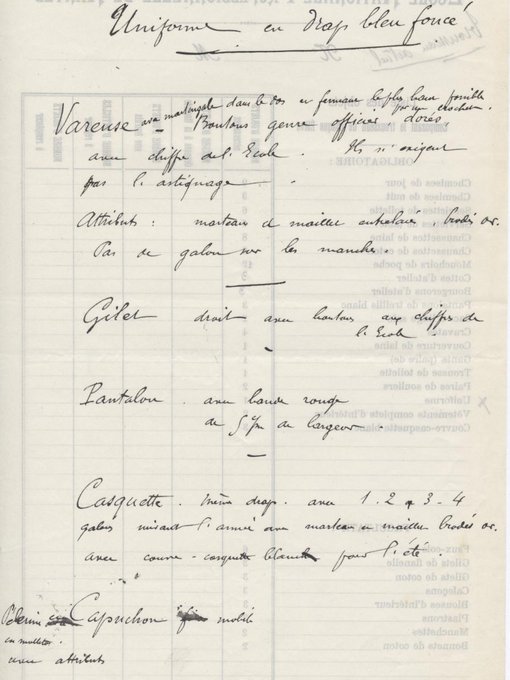 Uniforme en drap bleu foncé
Vareuse avec martingale dans le dos en fermant le plus haut possible
par un crochet.
– Boutons genre officier dorés,
avec chiffre de l'Ecole. Ils n'exigent
pas l'astiquage.
Attributs : marteau et maillet entrelacés, brodés or.
Pas de galon sur les manches.
Gilet droit avec boutons aux chiffres de
l'Ecole
Pantalon. avec bande rouge
de 5 c/m de largeur.
Casquette. même drap. avec 1. 2 3 - 4
galons suivant l'année avec marteau et maillet brodés or.
avec couvre-casquette blanche pour l'été.
Pèlerine Capuchon mobile
en molleton.
avec attributs
OBLIGATOIRE :
Chemises de jour
Chemises de nuit
Chaussettes de laine
Mouchoirs de poche
Cottes d'atelier
Bourgerons d'atelier
Pantalons de treillis blanc
Couverture de laine
Gants (paire de)
Trousse de toilette
Paires de souliers
Uniforme
Vêtements complets d'intérieur
Couvre-casquette blanc
Faux-cols
Gilets de flanelle
Gilets de coton
Caleçons
Blouses d'intérieur
Plastrons
Manchettes
Bonnets de coton